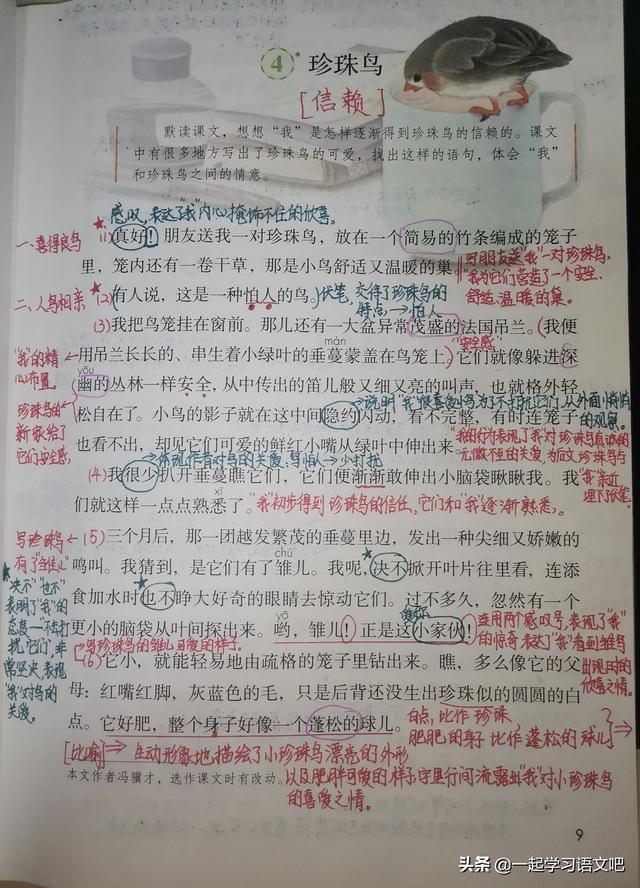 4* 珍珠鸟
[信赖]
默读课文，想想“我”是怎样逐渐得到珍珠鸟的信赖的。课文
中有很多地方写出了珍珠鸟的可爱，找出这样的语句，体会“我”
和珍珠鸟之间的情意。
感叹，表达了“我”内心掩饰不住的欣喜。
一、喜得良鸟
(1)真好！朋友送我一对珍珠鸟，放在一个简易的竹条编成的笼子
里，笼内还有一卷干草，那是小鸟舒适又温暖的巢。
写朋友送“我”一对珍珠鸟，
“我”为它们营造了一个安全、
舒适、温暖的巢。
二、人鸟相亲
(2)有人说，这是一种怕人的鸟。
伏笔，交待了珍珠鸟的
特点→怕人
(3)我把鸟笼挂在窗前。那儿还有一大盆异常茂盛的法国吊兰。我便
安全感
màn
用吊兰长长的、串生着小绿叶的垂蔓蒙盖在鸟笼上，它们就像躲进深
“我”的精
心布置，
珍珠鸟的
新家给了
它们安全感。
yōu
幽的丛林一样安全，从中传出的笛儿般又细又亮的叫声，也就格外轻
说明“我”很喜爱小鸟，为了不打扰它们，从外面悄悄
的观察。
松自在了。小鸟的影子就在这中间隐约闪动，看不完整，有时连笼子
也看不出，却见它们可爱的鲜红小嘴从绿叶中伸出来。
“我”的行为表现了“我”对珍珠鸟真诚的、
无微不至的关爱，为后文珍珠鸟与
“我”亲近
埋下伏笔。
体现作者对鸟的关爱，鸟怕人→少打扰
(4)我很少扒开垂蔓瞧它们，它们便渐渐敢伸出小脑袋瞅瞅我。我
xī
们就这样一点点熟悉了。
“我”初步得到珍珠鸟的信任，它们和“我”逐渐熟悉。
写珍珠鸟
有了“雏儿”
(5)三个月后，那一团越发繁茂的垂蔓里边，发出一种尖细又娇嫩的
chú
鸣叫。我猜到，是它们有了雏儿。我呢，决不掀开叶片往里看，连添
食加水时也不睁大好奇的眼睛去惊动它们。过不多久，忽然有一个
“决不”“也不”
表明了“我”的
态度——不去打
扰它们，非
常坚决，表现
“我”对鸟的
关爱。
yō
更小的脑袋从叶间探出来。哟，雏儿！正是这小家伙！
连用两个感叹号，表现了“我”
的惊奇，表达了“我”看到雏鸟
出现时的
欣喜之情。
写珍珠鸟的雏儿可爱的样子。
(6)它小，就能轻易地由疏格的笼子里钻出来。瞧，多么像它的父
母：红嘴红脚，灰蓝色的毛，只是后背还没生出珍珠似的圆圆的白
点。它好肥，整个身子好像一个蓬松的球儿。
白点，比作珍珠，
肥肥的身子比作蓬松的球儿
[比喻]⇒生动形象地描绘了小珍珠鸟漂亮的外形
以及肥胖可爱的样子，字里行间流露出“我”对小珍珠鸟
的喜爱之情。
本文作者冯骥才，选作课文时有改动。
9
头条 @一起学习语文吧